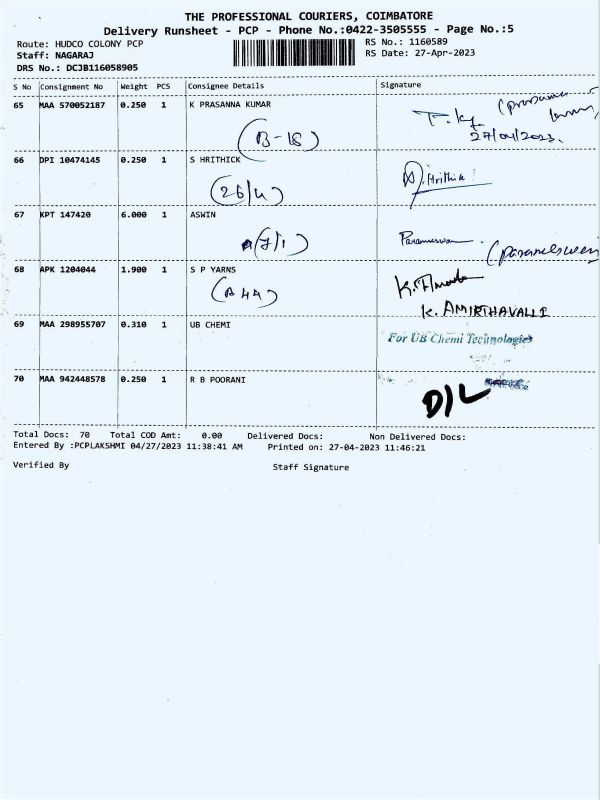 THE PROFESSIONAL COURIERS, COIMBATORE
Delivery Runsheet - PCP - Phone No.:0422-3505555 - Page No.:5
Route: HUDCO COLONY PCP RS No.: 1160589
Staff: NAGARAJ RS Date: 27-Apr-2023
DRS No.: DCJB116058905
S No Consignment No Weight PCS Consignee Details Signature
65 MAA 570052187 0.250 1 K PRASANNA KUMAR
(B-18) 27/04/2023.
66 DPI 10474145 0.250 1 S HRITHICK
(26/4) Hrithik
67 KPT 147420 6.000 1 ASWIN
(7/1) Parameswaran (parameswaran
68 APK 1204044 1.900 1 S P YARNS
(A44) K. AMIRTHAVALLI
69 MAA 298955707 0.310 1 UB CHEMI
For UB Chemi Technologies
70 MAA 942448578 0.250 1 R B POORANI
D/L
Total Docs: 70 Total COD Amt: 0.00 Delivered Docs: Non Delivered Docs:
Entered By :PCPLAKSHMI 04/27/2023 11:38:41 AM Printed on: 27-04-2023 11:46:21
Verified By Staff Signature